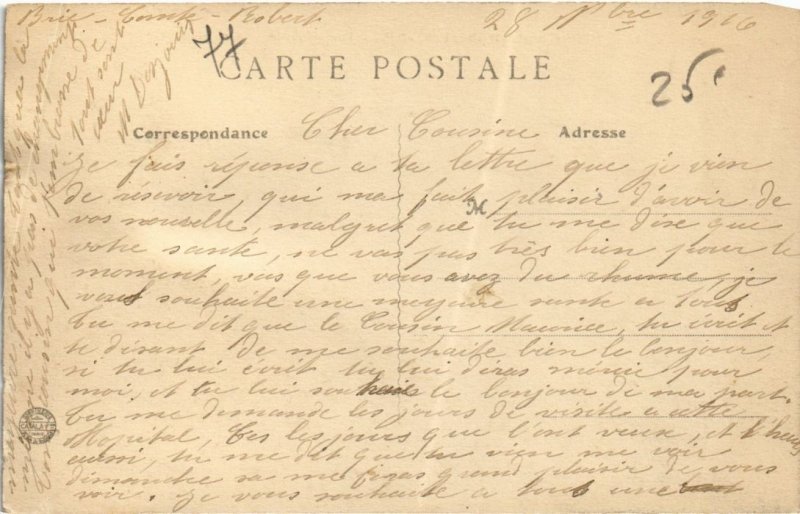 Brie-Comte-Robert 28 9bre 1916
77
CARTE POSTALE
25
Correspondance Cher Cousine Adresse
je fais réponse a ta lettre que je vien
de resevoir, qui ma fait plaisir d'avoir de
vos nouvelle, malgret que tu me dise que
M
votre santé, ne vas pas très bien pour le
moment, vas que vous avez du rhume, je
vous souhaite une meyeure santé a tous
Tu me dit que le Cousin Maurice, tu écrit et
te disant de me souhaité bien le bonjour,
si tu lui écrit tu lui diras mercie pour
moi, et tu lui souhais le bonjour de ma part.
Tu me demande les jours de visite a cette
Hopital Ces les jours que l'ont veux, et l'heure
aussi, tu me dit que tu vien me voir
dimanche sa me firas grand plaisir de vous
voir. je vous souhaite a tous une
santé
il y a pas de changement
cousin qui t'embrasse de
tout sont
cœur
M